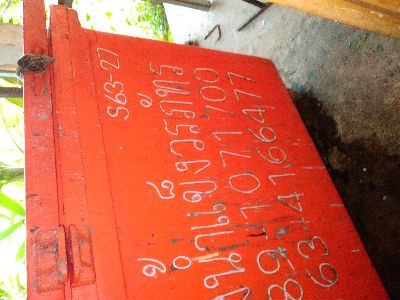 S63-27
งน้ำแข็งวรภัทร
89-1071700
63-4166477